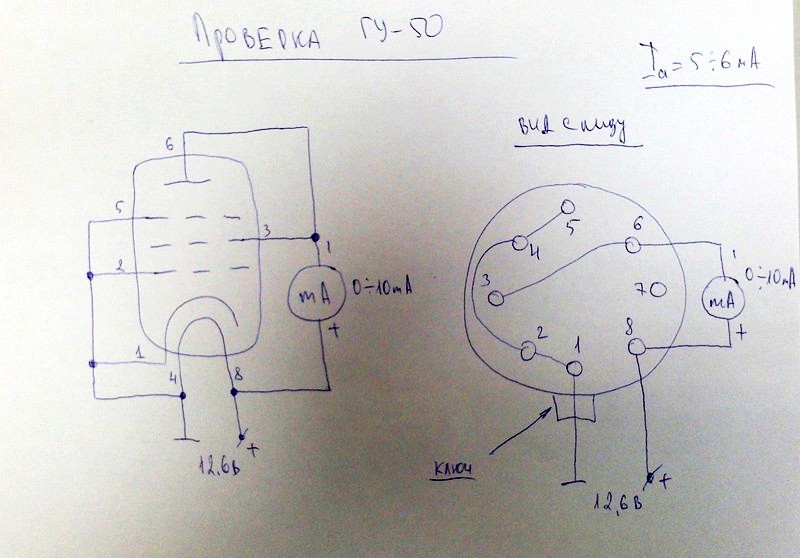 ПРОВЕРКА ГУ-50
Ia = 5÷6 мА
ВИД СНИЗУ
6
5
3
2
1
4
8
mA
0÷10mA
+
12,6В
+
5
4
6
3
7
2
1
8
mA
0÷10mA
+
КЛЮЧ
12,6В
+